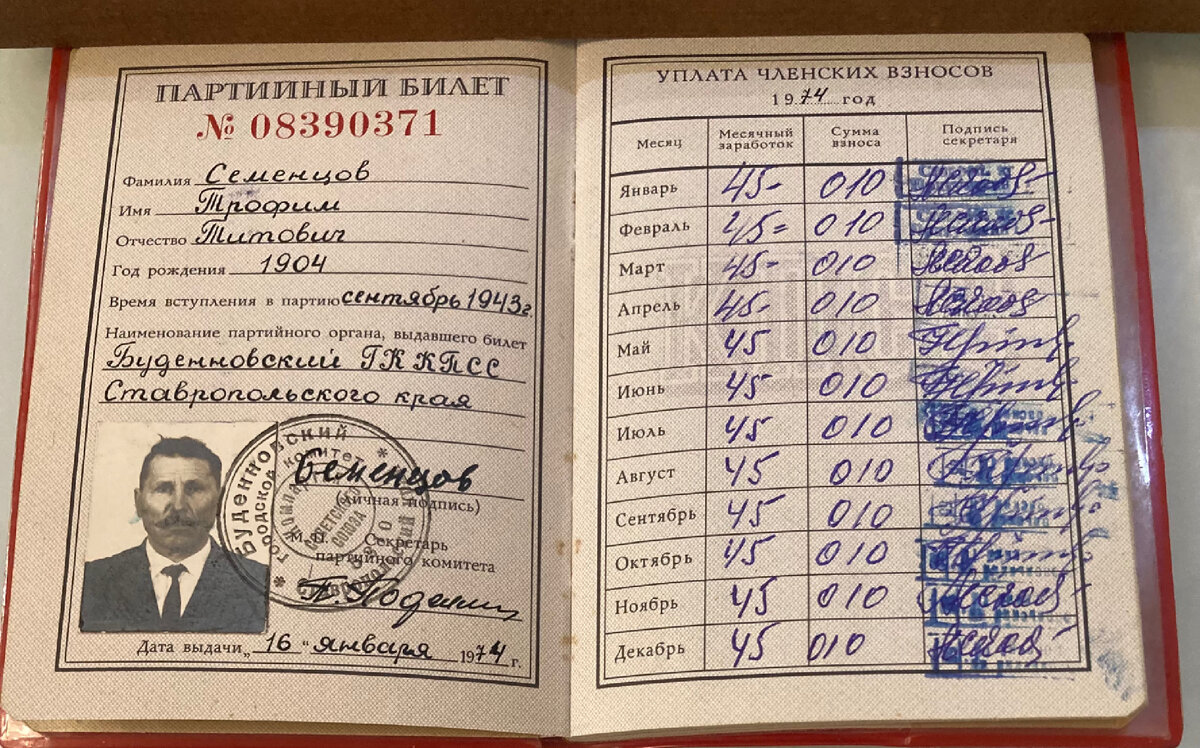 ПАРТИЙНЫЙ БИЛЕТ
№ 08390371
Фамилия Семенцов
Имя Трофим
Отчество Титович
Год рождения 1904
Время вступления в партию сентябрь 1943г.
Наименование партийного органа, выдавшего билет
Буденновский ГК КПСС
Ставропольского края
Буденновский
городской комитет
Советского
Союза
Семенцов
(Личная подпись)
М. П. Секретарь
партийного комитета
Дата выдачи „16 “ января 1974 г.
УПЛАТА ЧЛЕНСКИХ ВЗНОСОВ
1974 год
Месяц Месячный заработок Сумма взноса Подпись секретаря
Январь 45- 010
Февраль 45= 010
Март 45- 010
Апрель 45- 010
Май 45 010
Июнь 45 010
Июль 45 010
Август 45 010
Сентябрь 45 010
Октябрь 45 010
Ноябрь 45 010
Декабрь 45 010